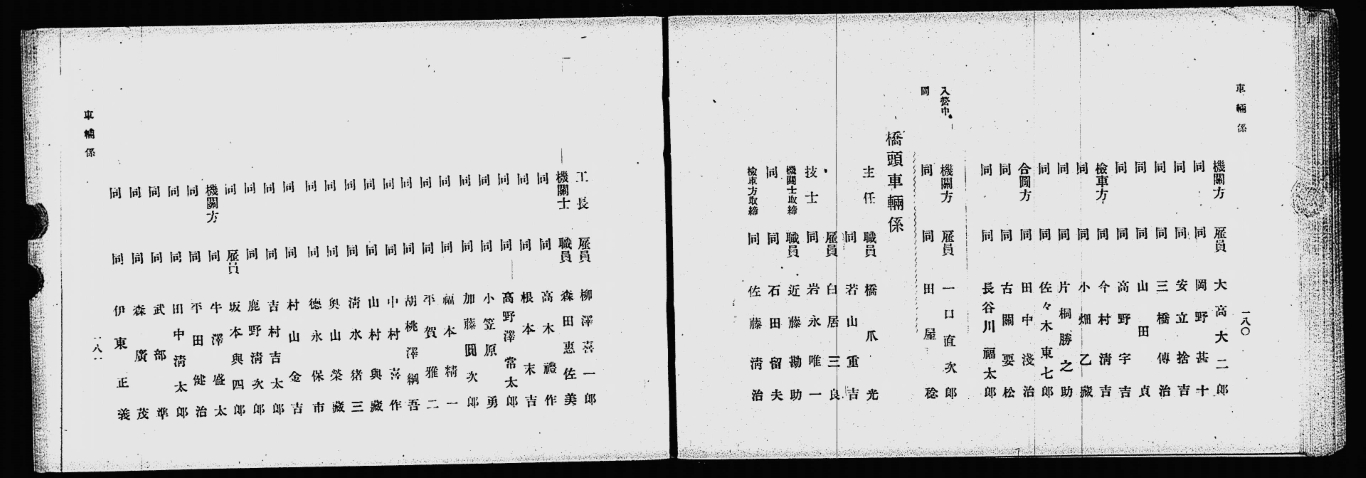 車輛係
一八〇
機關方 雇員 大高大二郎
同 同 岡野甚十
同 同 安立捨吉
同 同 三橋傳治
同 同 山田貞
同 同 高野字吉
檢車方 同 今村清吉
同 同 小畑乙藏
同 同 片桐勝之助
同 同 佐々木東七郎
合圖方 同 田中淺治
同 同 古關要松
同 同 長谷川福太郎
入營中 機關方 雇員 一口直次郎
同 同 同 田屋稔
橋頭車輛係
主任 職員 橋爪光
同 若山重吉
技士 雇員 臼居三良
同 岩永唯一
機關士取締 職員 近藤勘助
同 同 石田留夫
檢車方取締 同 佐藤清治
工長 雇員 柳澤喜一郎
機關士 職員 森田惠佐美
同 同 高木禮作
同 同 根本末吉
同 同 高野澤常太郎
同 同 小笠原勇
同 同 加藤圓次郎
同 同 福本精一
同 同 平賀雅二
同 同 胡桃澤綱吾
同 同 中村喜作
同 同 山村與藏
同 同 清水猪三
同 同 奥山榮藏
同 同 德永保市
同 同 村山金吉
同 同 吉村吉太郎
同 同 鹿野清次郎
同 雇員 坂本與四郎
機關方 同 牛澤盛太
同 同 平田健治
同 同 田中清太郎
同 同 武部準
同 同 森廣茂
同 同 伊東正義
車輛係
一八一